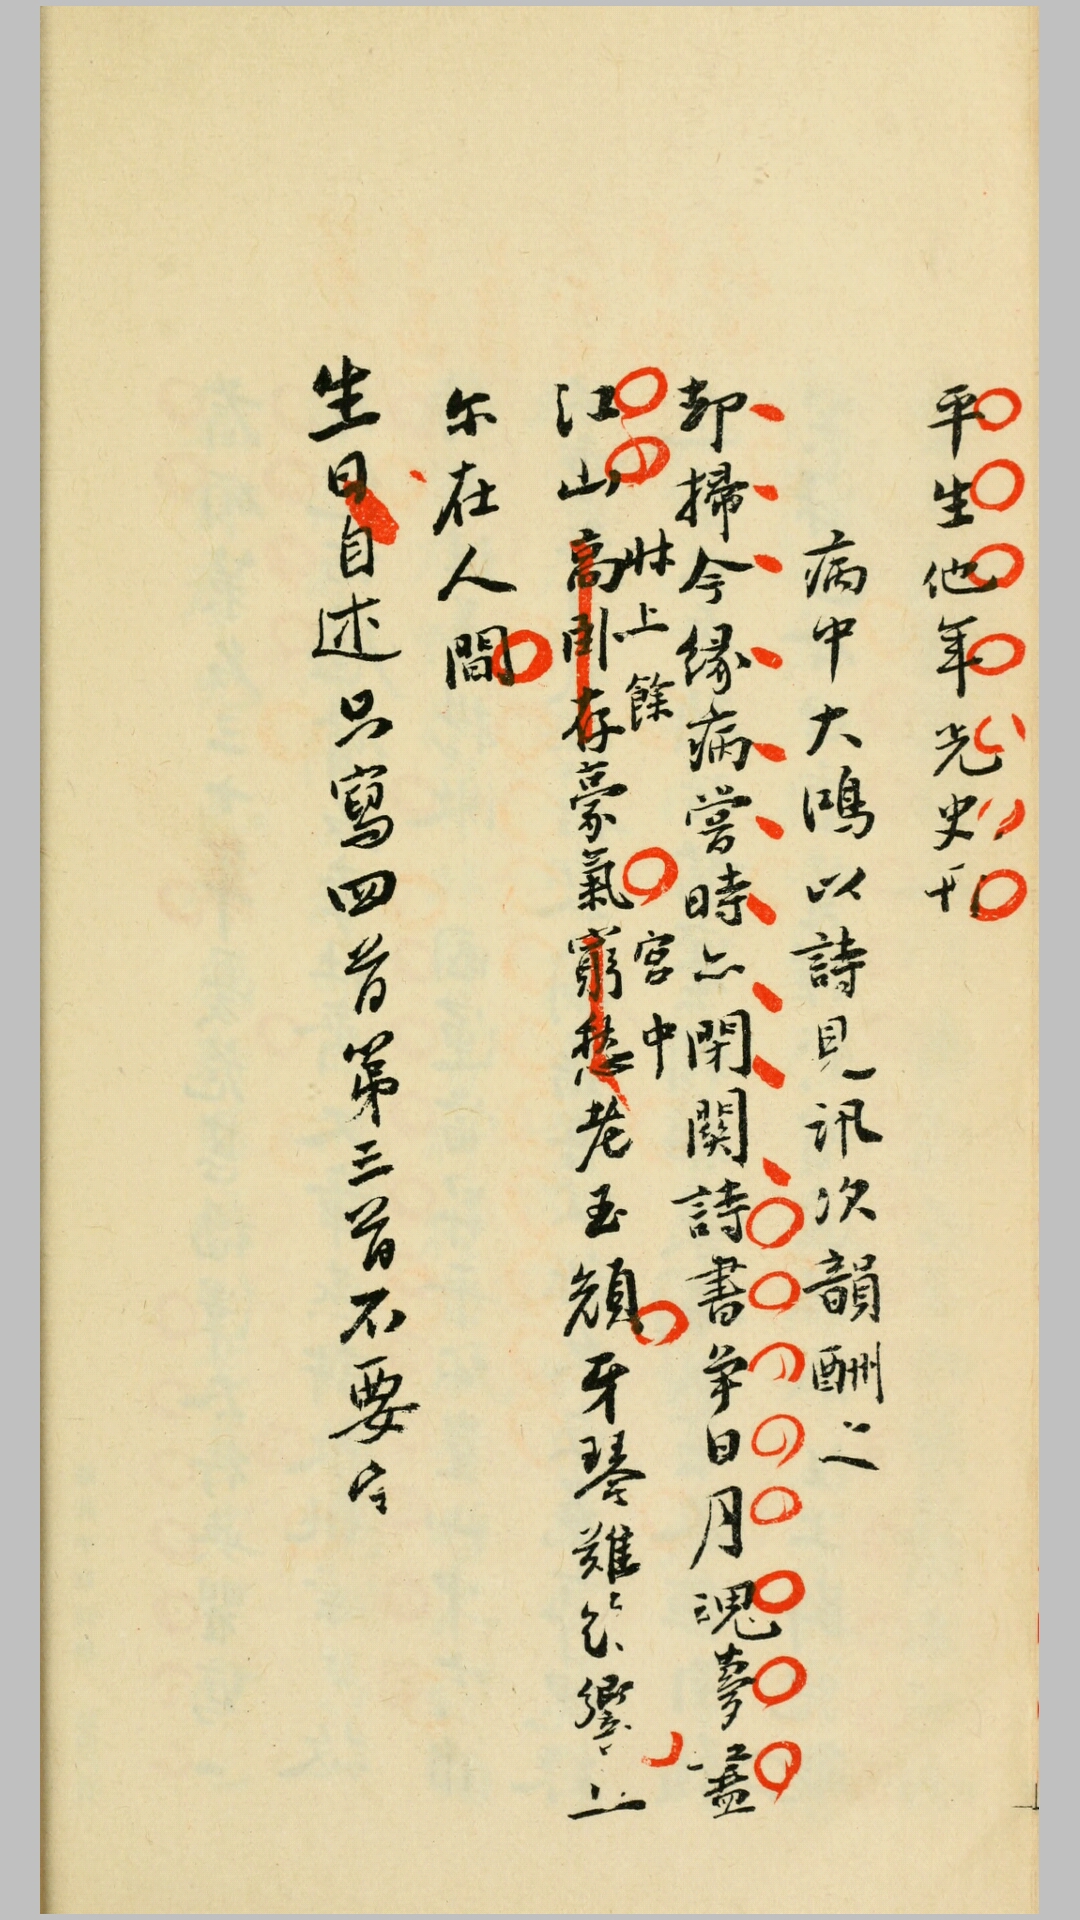 平生他年光史刊
病中大鴻以詩見訊次韻酬之
却掃今緣病嘗時亦閉關詩書爭日月魂夢蓋
江山高臥存豪氣窮愁老玉顏牙琴難絕響
牀上餘
宮中
尔在人間
生日自述只寫四首第三首不要